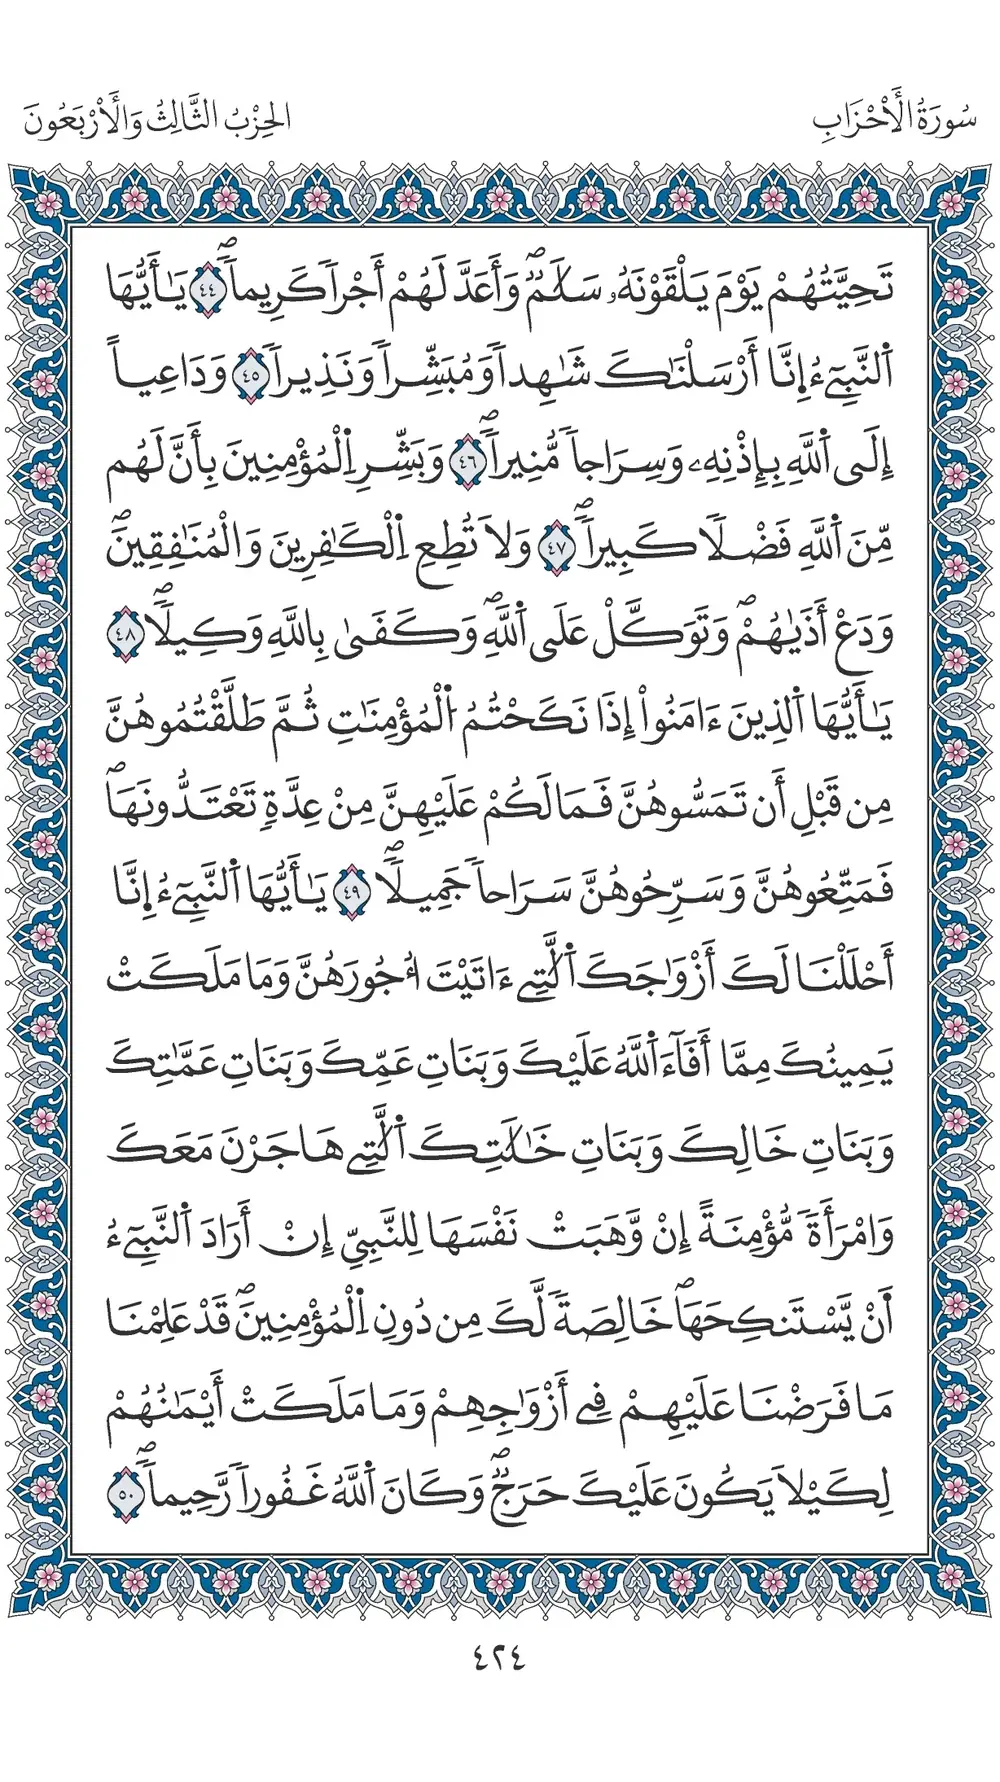 سُورَةُ الْأَحْزَابِ
الحِزْبُ الثَّالِثُ وَالْأَرْبَعُونَ
تَحِيَّتُهُمْ يَوْمَ يَلْقَوْنَهُۥ سَلَٰمٌۖ وَأَعَدَّ لَهُمْ أَجْراٗ كَرِيماٗۖ ٤٤ يَٰأَيُّهَا
اَ۬لنَّبِےٓءُ اِ۪نَّا أَرْسَلْنَٰكَ شَٰهِداٗ وَمُبَشِّراٗ وَنَذِيراٗ ٤٥ وَدَاعِياً
إِلَى اَ۬للَّهِ بِإِذْنِهِۦ وَسِرَاجاٗ مُّنِيراٗۖ ٤٦ وَبَشِّرِ اِ۬لْمُؤْمِنِينَ بِأَنَّ لَهُم
مِّنَ اَ۬للَّهِ فَضْلاٗ كَبِيراٗۖ ٤٧ وَلَا تُطِعِ اِ۬لْكَٰفِرِينَ وَالْمُنَٰفِقِينَۖ
وَدَعْ أَذَىٰهُمْۖ وَتَوَكَّلْ عَلَى اَ۬للَّهِۖ وَكَفَىٰ بِاللَّهِ وَكِيلاٗۖ ٤٨
يَٰأَيُّهَا اَ۬لذِينَ ءَامَنُواْ إِذَا نَكَحْتُمُ اُ۬لْمُؤْمِنَٰتِ ثُمَّ طَلَّقْتُمُوهُنَّ
مِن قَبْلِ أَن تَمَسُّوهُنَّ فَمَا لَكُمْ عَلَيْهِنَّ مِنْ عِدَّةٖ تَعْتَدُّونَهَاۖ
فَمَتِّعُوهُنَّ وَسَرِّحُوهُنَّ سَرَاحاٗ جَمِيلاٗۖ ٤٩ يَٰأَيُّهَا اَ۬لنَّبِےٓءُ اِ۪نَّا
أَحْلَلْنَا لَكَ أَزْوَٰجَكَ اَ۬لَّٰتِے ءَاتَيْتَ أُجُورَهُنَّ وَمَا مَلَكَتْ
يَمِينُكَ مِمَّا أَفَآءَ اَ۬للَّهُ عَلَيْكَ وَبَنَاتِ عَمِّكَ وَبَنَاتِ عَمَّٰتِكَ
وَبَنَاتِ خَالِكَ وَبَنَاتِ خَٰلَٰتِكَ اَ۬لَّٰتِے هَاجَرْنَ مَعَكَ
وَامْرَأَةٗ مُّؤْمِنَةً إِنْ وَّهَبَتْ نَفْسَهَا لِلنَّبِيِّ إِنْ أَرَادَ اَ۬لنَّبِےٓءُ
اَ۪نْ يَّسْتَنكِحَهَاۖ خَالِصَةٗ لَّكَ مِن دُونِ اِ۬لْمُؤْمِنِينَۖ قَدْ عَلِمْنَا
مَا فَرَضْنَا عَلَيْهِمْ فِے أَزْوَٰجِهِمْ وَمَا مَلَكَتْ أَيْمَٰنُهُمْ
لِكَيْلَا يَكُونَ عَلَيْكَ حَرَجٌۖ وَكَانَ اَ۬للَّهُ غَفُوراٗ رَّحِيماٗۖ ٥٠
٤٢٤